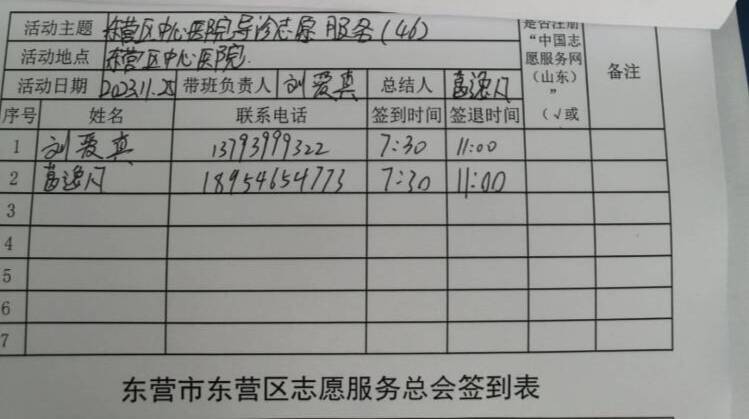 活动主题 东营区中心医院导诊志愿服务(46)
活动地点 东营区中心医院
活动日期 2023.11.25 带班负责人 刘爱真 总结人
是否注册
“中国志
愿服务网
（山东）
”
（√或
备注
序号 姓名 联系电话 签到时间 签退时间
1 刘爱真 13793999322 7:30 11:00
2 18954654773 7:30 11:00
3
4
5
6
7
东营市东营区志愿服务总会签到表